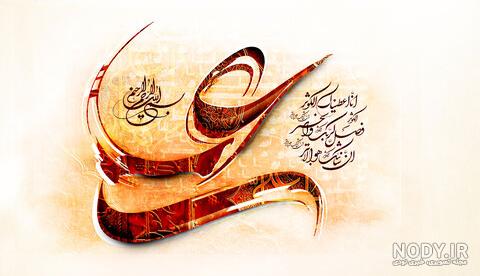 بسم الله الرحمن الرحیم
انا اعطیناک الکوثر
فصل لربک وانحر
ان شانئک هو الابتر
NODY.IR
مجله تصویری، خبری نودی